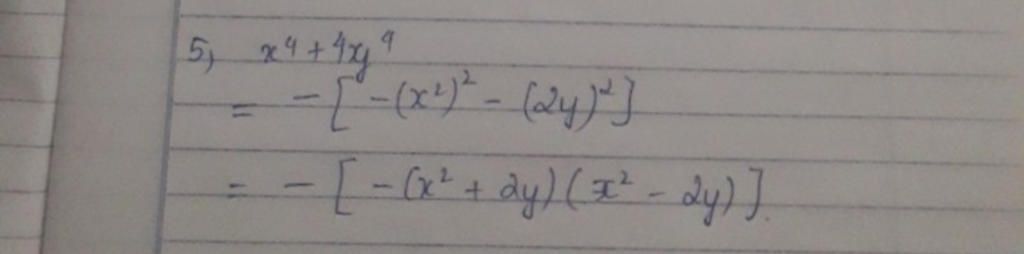 5) x⁴ + 4xy⁴
= - [ - (x²)² - (2y)² ]
= - [ - (x² + 2y) (x² - 2y) ].